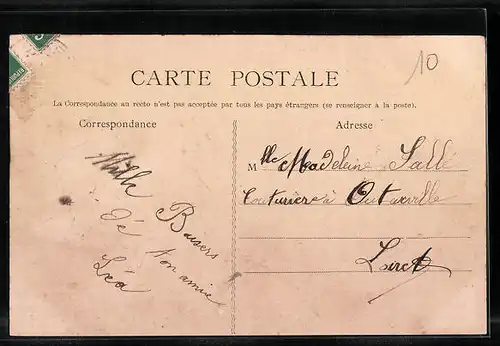 10
CARTE POSTALE
La Correspondance au recto n'est pas acceptée par tous les pays étrangers (se renseigner à la poste).
Correspondance
Mille
Baisers
de
ton amie
Léa
Adresse
Mlle Madeleine Sallé
Couturière à Outarville
Loiret